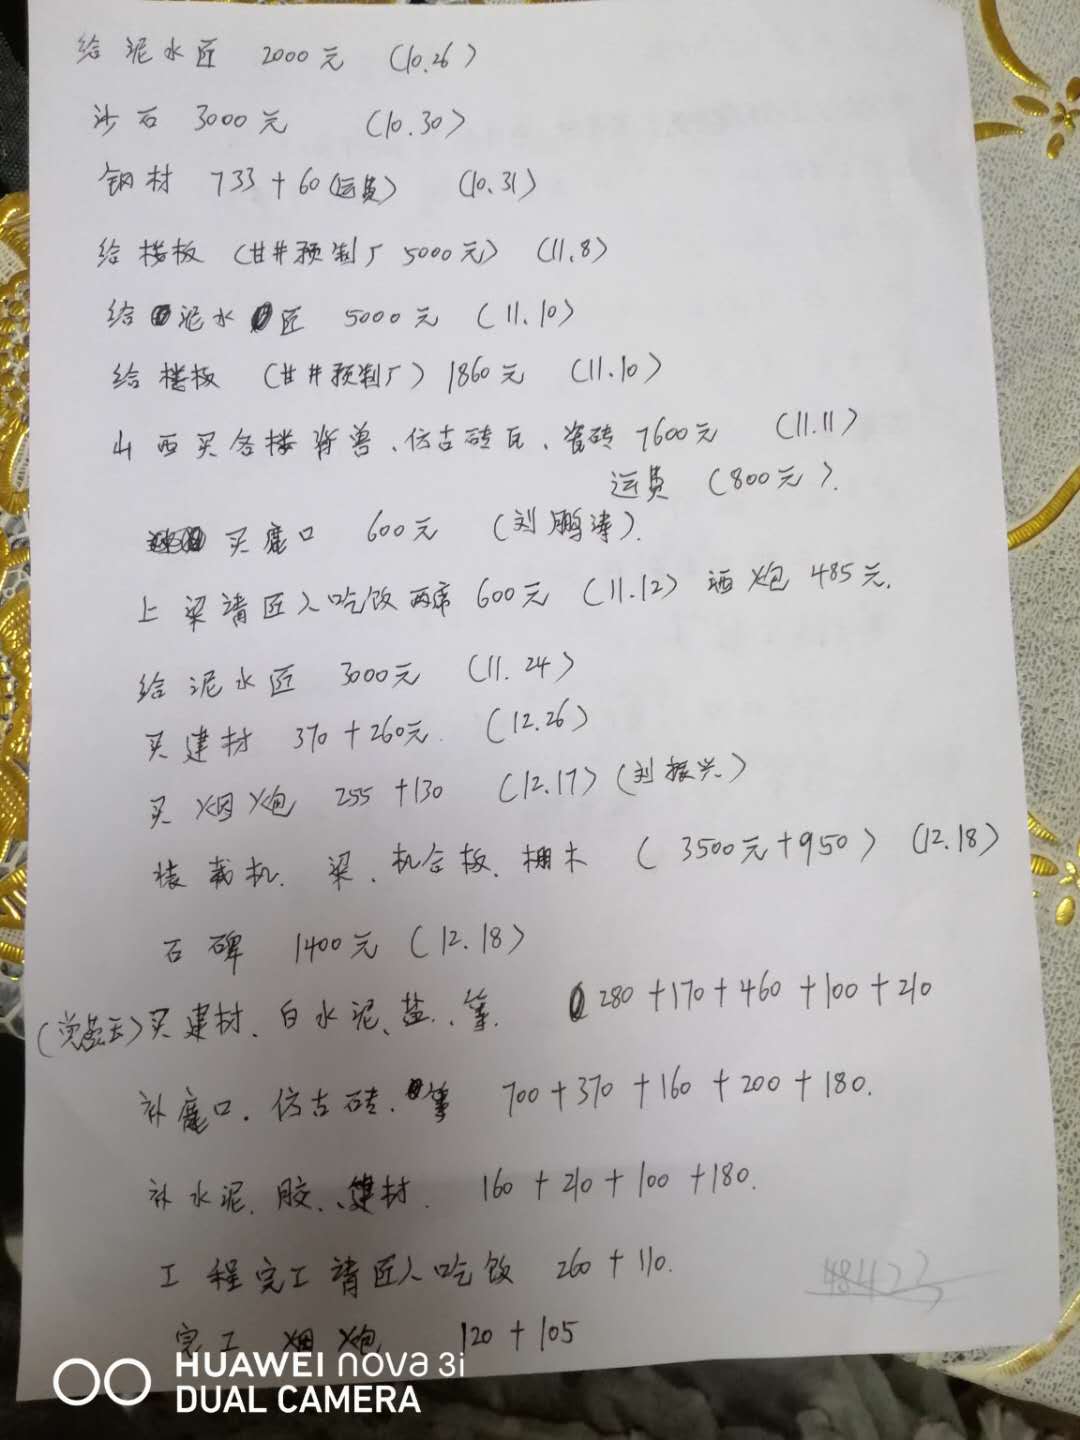 给泥水匠 2000元 (10.26)
沙石 3000元 (10.30)
钢材 733+60(运费) (10.31)
给楼板 (甘井预制厂 5000元) (11.8)
给泥水匠 5000元 (11.10)
给楼板 (甘井预制厂) 1860元 (11.10)
山西买各楼脊兽、仿古砖瓦、瓷砖 7600元 (11.11)
运费 (800元).
买 口 600元 (刘鹏涛).
上梁请匠人吃饭两席 600元 (11.12) 酒炮 485元.
给泥水匠 3000元 (11.24)
买建材 370+260元. (12.26)
买烟炮 255+130 (12.17) (刘振兴)
装载机、梁、机合板、棚木 (3500元+950) (12.18)
石碑 1400元 (12.18)
买建材、白水泥、盐、等. 280+170+460+100+210
补 口、仿古砖、等 700+370+160+200+180.
补水泥、胶、建材. 160+210+100+180.
工程完工请匠人吃饭 260+110.
48423
完工烟炮 120+105
HUAWEI nova 3i
DUAL CAMERA